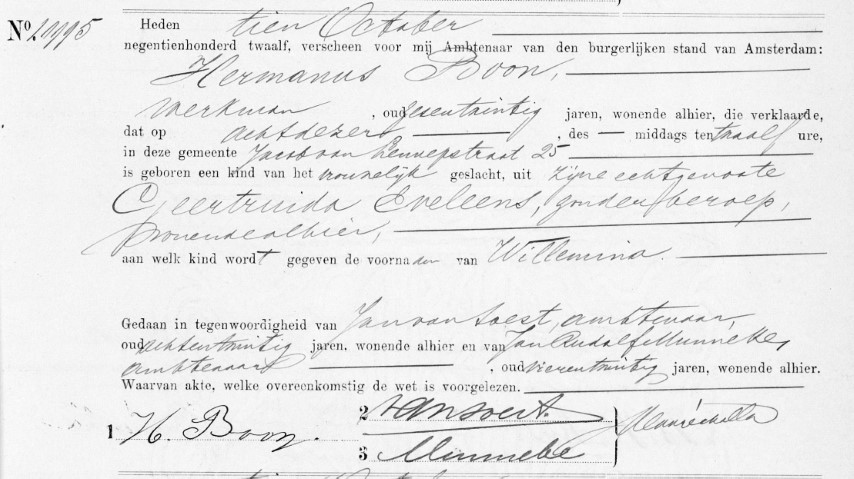 Heden tien October
No
negentienhonderd twaalf, verscheen voor mij Ambtenaar van den burgerlijken stand van Amsterdam:
Hermanus Boon,
werkman, oud zesentwintig jaren, wonende alhier, die verklaarde,
dat op acht dezer, des — middags ten twaalf ure,
in deze gemeente Jacob van Lennepstraat 25
is geboren een kind van het vrouwelijk geslacht, uit zijne echtgenoote
Geertruida Eveleens, zonder beroep,
wonende alhier,
aan welk kind wordt gegeven de voornaam van Willemina.
Gedaan in tegenwoordigheid van Jan van Soest, ambtenaar,
oud achtentwintig jaren, wonende alhier en van Jan Rudolf Minneke,
ambtenaar, oud vierentwintig jaren, wonende alhier.
Waarvan akte, welke overeenkomstig de wet is voorgelezen.
2 van Soest.
1 H. Boon.
3 Minneke